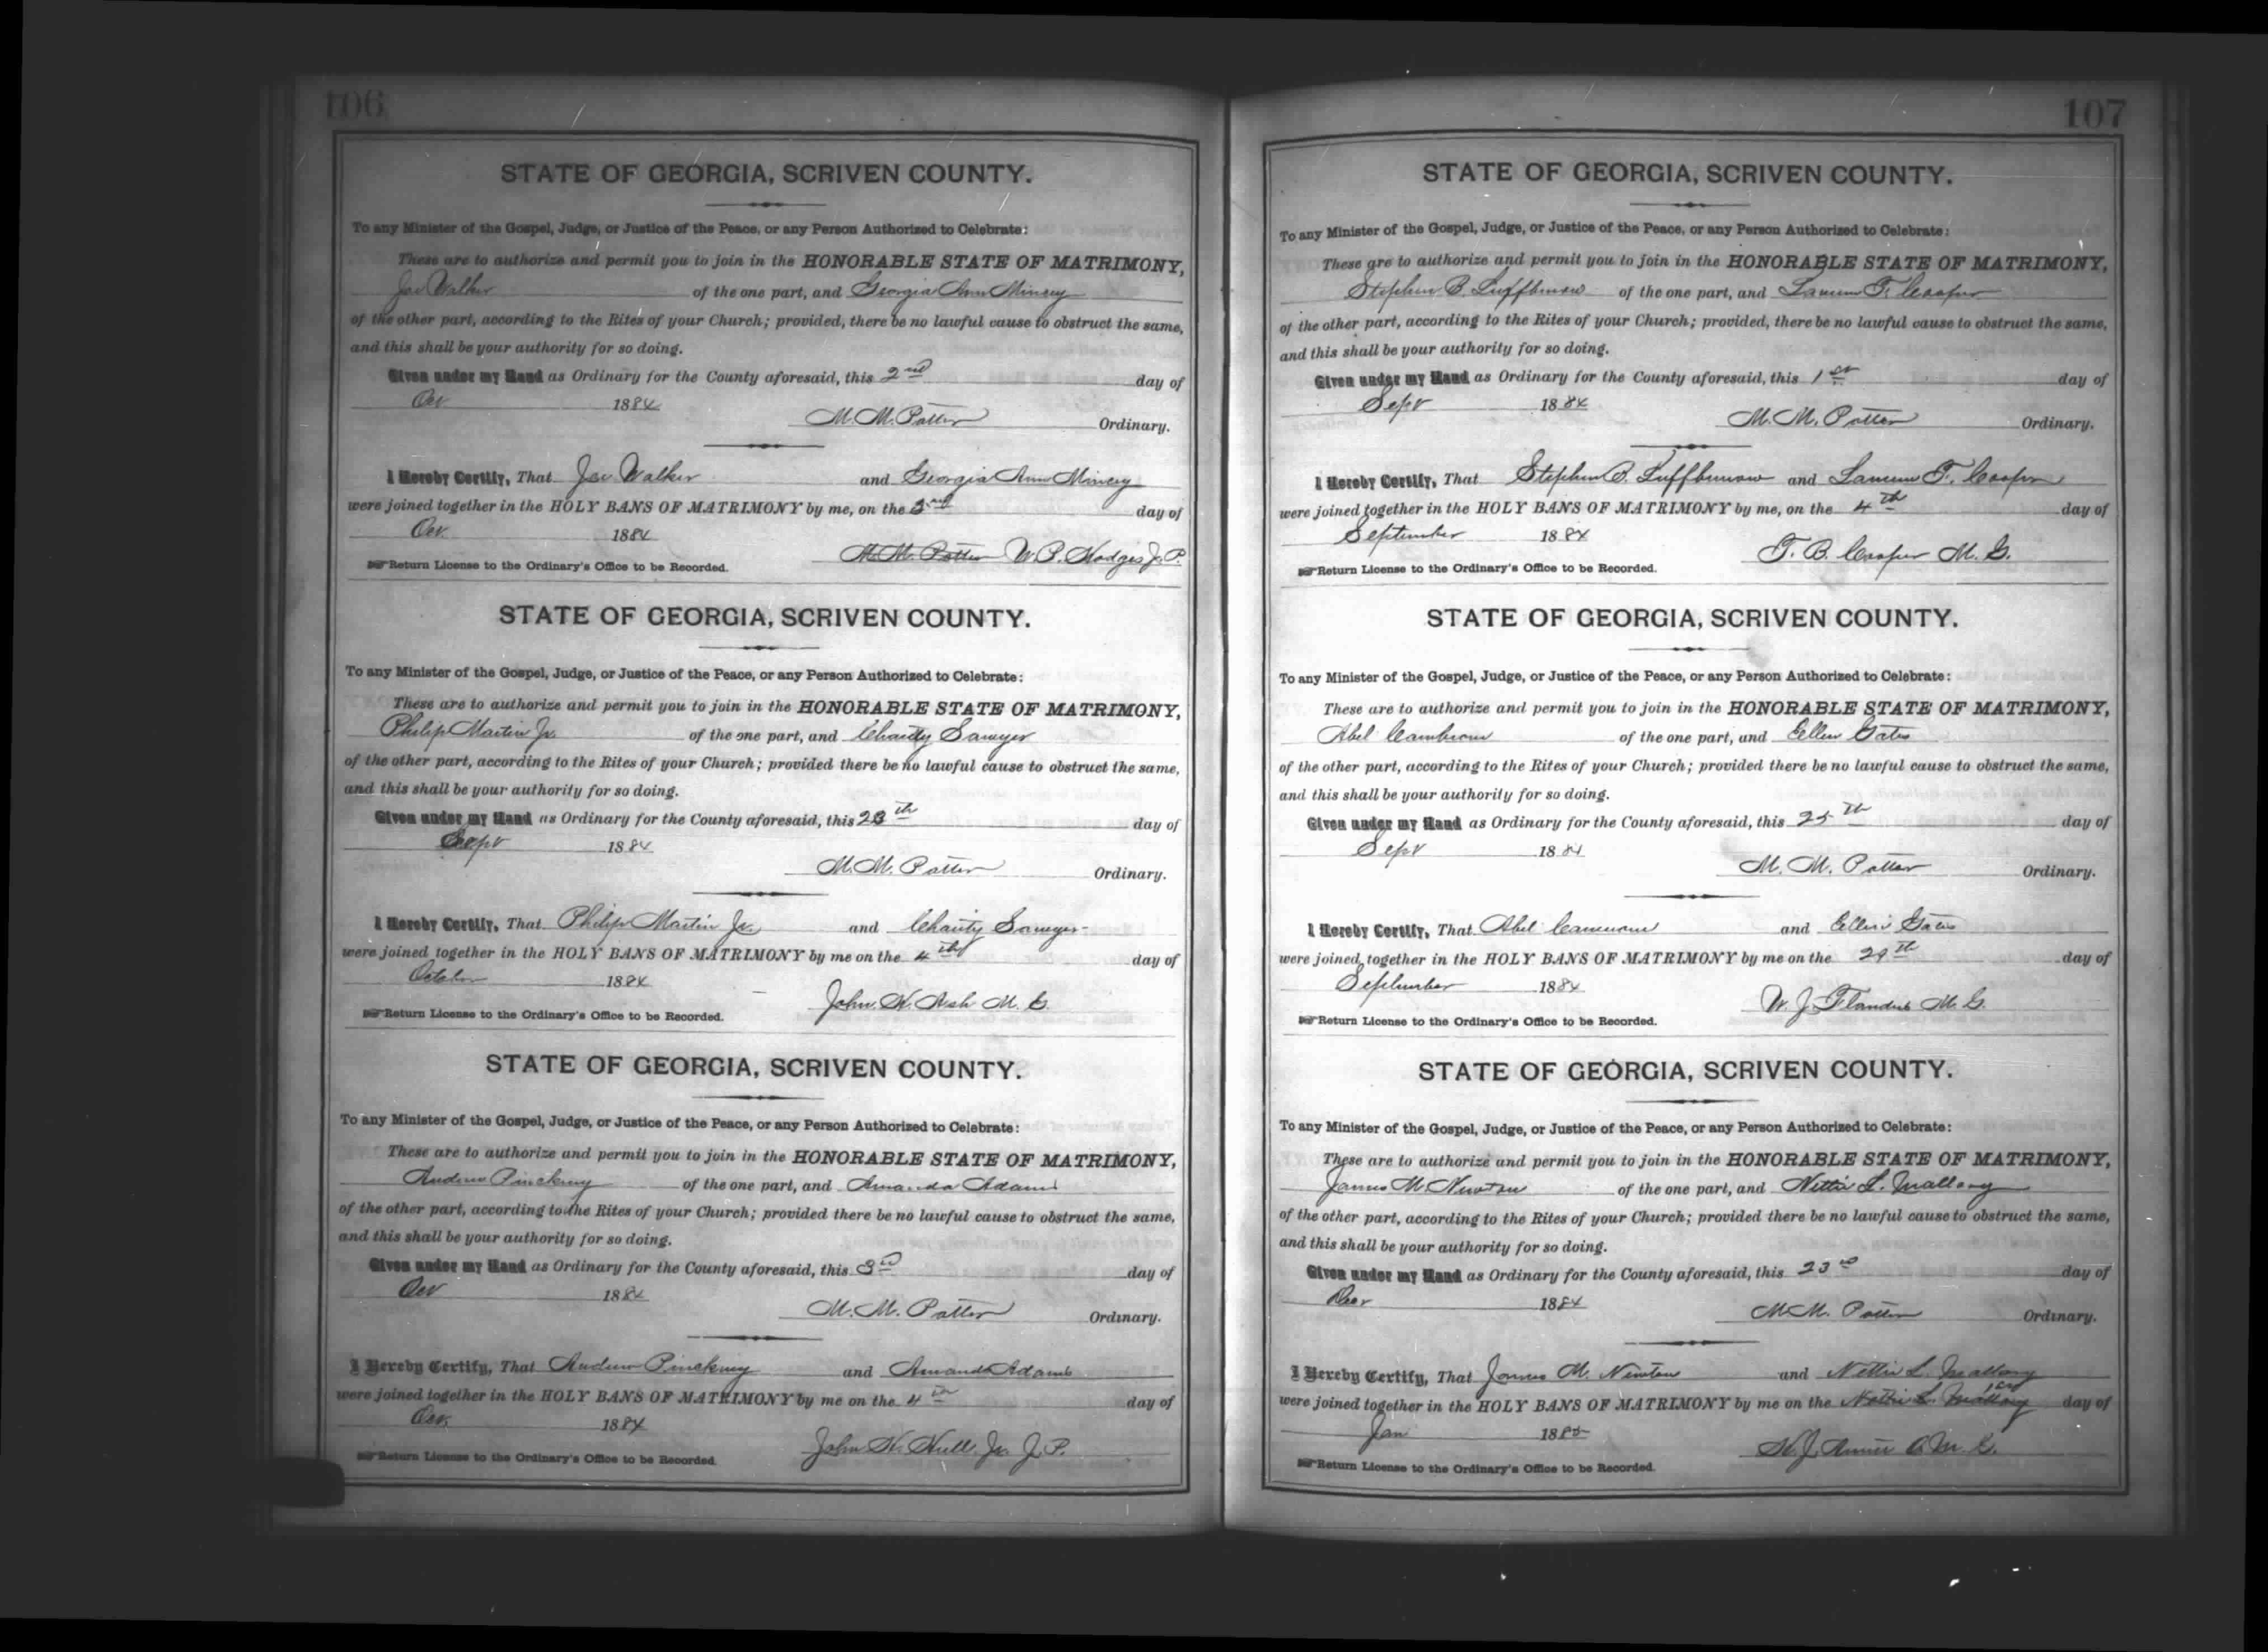 106
STATE OF GEORGIA, SCRIVEN COUNTY.
To any Minister of the Gospel, Judge, or Justice of the Peace, or any Person Authorized to Celebrate:
These are to authorize and permit you to join in the HONORABLE STATE OF MATRIMONY,
Walker of the one part, and Georgia Ann Mincey
of the other part, according to the Rites of your Church; provided, there be no lawful cause to obstruct the same,
and this shall be your authority for so doing.
Given under my Hand as Ordinary for the County aforesaid, this 2nd day of
Oct 1884 M. M. Potter Ordinary.
I Hereby Certify, That Walker and Georgia Ann Mincey
were joined together in the HOLY BANS OF MATRIMONY by me, on the day of
Oct. 1884 M. M. Potter W. P. Hodges J. P.
Return License to the Ordinary's Office to be Recorded.
STATE OF GEORGIA, SCRIVEN COUNTY.
To any Minister of the Gospel, Judge, or Justice of the Peace, or any Person Authorized to Celebrate:
These are to authorize and permit you to join in the HONORABLE STATE OF MATRIMONY,
Philip Martin Jr. of the one part, and Charity Sawyer
of the other part, according to the Rites of your Church; provided there be no lawful cause to obstruct the same,
and this shall be your authority for so doing.
Given under my Hand as Ordinary for the County aforesaid, this day of
Sept 1884 M. M. Potter Ordinary.
I Hereby Certify, That Philip Martin Jr. and Charity Sawyer
were joined together in the HOLY BANS OF MATRIMONY by me on the 4th day of
October 1884 John H. Ash M. G.
Return License to the Ordinary's Office to be Recorded.
STATE OF GEORGIA, SCRIVEN COUNTY.
To any Minister of the Gospel, Judge, or Justice of the Peace, or any Person Authorized to Celebrate:
These are to authorize and permit you to join in the HONORABLE STATE OF MATRIMONY,
Andrew Pinckney of the one part, and Amanda Adams
of the other part, according to the Rites of your Church; provided there be no lawful cause to obstruct the same,
and this shall be your authority for so doing.
Given under my Hand as Ordinary for the County aforesaid, this 3rd day of
Oct 1884 M. M. Potter Ordinary.
I Hereby Certify, That Andrew Pinckney and Amanda Adams
were joined together in the HOLY BANS OF MATRIMONY by me on the 4th day of
Oct. 1884 John H. Hull Jr. J. P.
Return License to the Ordinary's Office to be Recorded.
107
STATE OF GEORGIA, SCRIVEN COUNTY.
To any Minister of the Gospel, Judge, or Justice of the Peace, or any Person Authorized to Celebrate:
These are to authorize and permit you to join in the HONORABLE STATE OF MATRIMONY,
Stephen B. Luffburrow of the one part, and F. Cooper
of the other part, according to the Rites of your Church; provided, there be no lawful cause to obstruct the same,
and this shall be your authority for so doing.
Given under my Hand as Ordinary for the County aforesaid, this 1st day of
Sept 1884 M. M. Potter Ordinary.
I Hereby Certify, That Stephen B. Luffburrow and F. Cooper
were joined together in the HOLY BANS OF MATRIMONY by me, on the 4th day of
September 1884 T. B. Cooper M. G.
Return License to the Ordinary's Office to be Recorded.
STATE OF GEORGIA, SCRIVEN COUNTY.
To any Minister of the Gospel, Judge, or Justice of the Peace, or any Person Authorized to Celebrate:
These are to authorize and permit you to join in the HONORABLE STATE OF MATRIMONY,
Abel of the one part, and Ellen Gates
of the other part, according to the Rites of your Church; provided there be no lawful cause to obstruct the same,
and this shall be your authority for so doing.
Given under my Hand as Ordinary for the County aforesaid, this 25th day of
Sept 1884 M. M. Potter Ordinary.
I Hereby Certify, That Abel and Ellen Gates
were joined together in the HOLY BANS OF MATRIMONY by me on the day of
September 1884 W. J. Flanders M. G.
Return License to the Ordinary's Office to be Recorded.
STATE OF GEORGIA, SCRIVEN COUNTY.
To any Minister of the Gospel, Judge, or Justice of the Peace, or any Person Authorized to Celebrate:
These are to authorize and permit you to join in the HONORABLE STATE OF MATRIMONY,
James M. Newton of the one part, and Nettie L. Mallory
of the other part, according to the Rites of your Church; provided there be no lawful cause to obstruct the same,
and this shall be your authority for so doing.
Given under my Hand as Ordinary for the County aforesaid, this 23rd day of
Decr 1884 M. M. Potter Ordinary.
I Hereby Certify, That James M. Newton and Nettie L. Mallory
were joined together in the HOLY BANS OF MATRIMONY by me on the Nettie L. Mallory 1st day of
Jan 1885 M. G.
Return License to the Ordinary's Office to be Recorded.